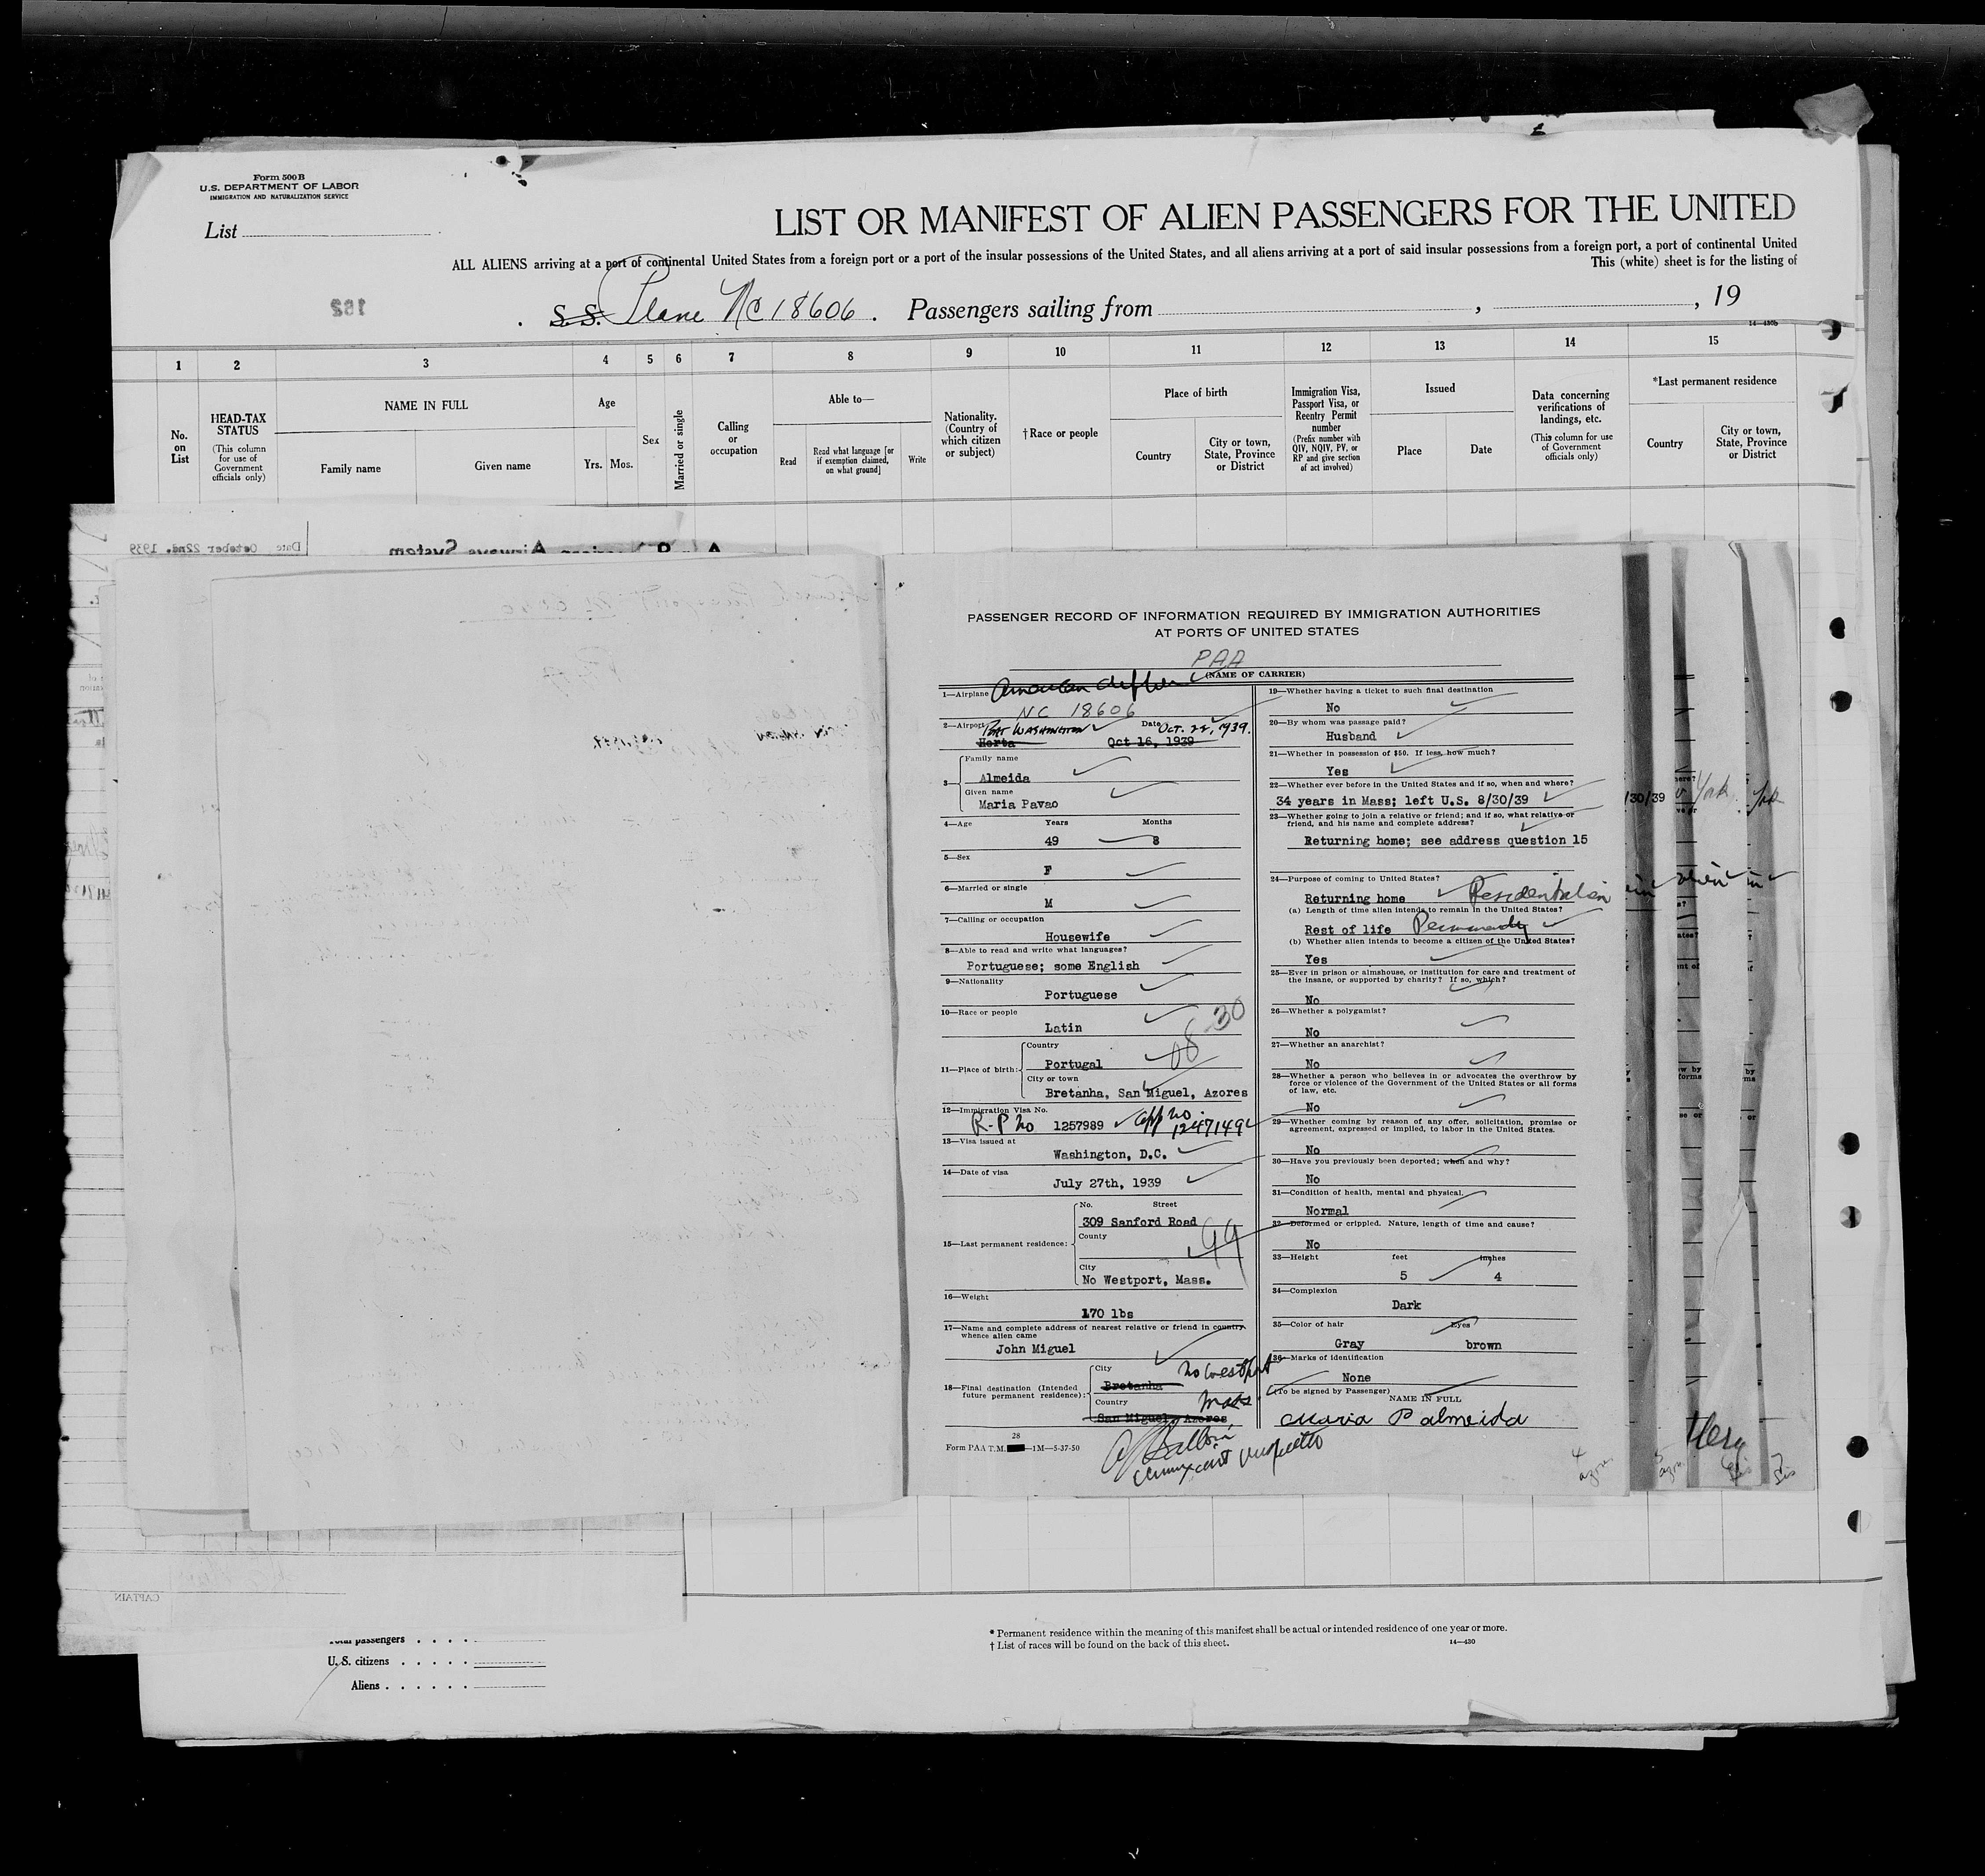 Form 500 B
U.S. DEPARTMENT OF LABOR
IMMIGRATION AND NATURALIZATION SERVICE
List
LIST OR MANIFEST OF ALIEN PASSENGERS FOR THE UNITED
ALL ALIENS arriving at a port of continental United States from a foreign port or a port of the insular possessions of the United States, and all aliens arriving at a port of said insular possessions from a foreign port, a port of continental United
This (white) sheet is for the listing of
162
S.S. Plane NC 18606. Passengers sailing from , , 19
14—430b
1 2 3 4 5 6 7 8 9 10 11 12 13 14 15
No. on List
HEAD-TAX STATUS
(This column for use of Government officials only)
NAME IN FULL
Family name
Given name
Age
Yrs. Mos.
Sex
Married or single
Calling or occupation
Able to—
Read
Read what language [or if exemption claimed, on what ground]
Write
Nationality. (Country of which citizen or subject)
†Race or people
Place of birth
Country
City or town, State, Province or District
Immigration Visa, Passport Visa, or Reentry Permit number
(Prefix number with QIV, NQIV, PV, or RP and give section of act involved)
Issued
Place
Date
Data concerning verifications of landings, etc.
(This column for use of Government officials only)
*Last permanent residence
Country
City or town, State, Province or District
Date October 22nd, 1939
Airways System
PASSENGER RECORD OF INFORMATION REQUIRED BY IMMIGRATION AUTHORITIES
AT PORTS OF UNITED STATES
PAA
(NAME OF CARRIER)
1—Airplane American Clipper
NC 18606
2—Airport Port Washington Date Oct. 22, 1939.
Horta Oct 16, 1939
3—
Family name
Almeida
Given name
Maria Pavao
4—Age Years Months
49 8
5—Sex
F
6—Married or single
M
7—Calling or occupation
Housewife
8—Able to read and write what languages?
Portuguese; some English
9—Nationality
Portuguese
10—Race or people
Latin
30
11—Place of birth:
Country
Portugal
City or town
Bretanha, San Miguel, Azores
12—Immigration Visa No.
R-P No 1257989 App no. 1247149
13—Visa issued at
Washington, D.C.
14—Date of visa
July 27th, 1939
15—Last permanent residence:
No. Street
309 Sanford Road
County
99
City
No Westport, Mass.
16—Weight
170 lbs
17—Name and complete address of nearest relative or friend in country whence alien came
John Miguel
18—Final destination (Intended future permanent residence):
City
Bretanha No Westport
Country
San Miguel, Azores Mass.
28
Form PAA T.M. —1M—5-37-50
19—Whether having a ticket to such final destination
No
20—By whom was passage paid?
Husband
21—Whether in possession of $50. If less, how much?
Yes
22—Whether ever before in the United States and if so, when and where?
34 years in Mass; left U.S. 8/30/39
23—Whether going to join a relative or friend; and if so, what relative or
friend, and his name and complete address?
Returning home; see address question 15
24—Purpose of coming to United States?
Returning home
(a) Length of time alien intends to remain in the United States?
Rest of life Permanently
(b) Whether alien intends to become a citizen of the United States?
Yes
25—Ever in prison or almshouse, or institution for care and treatment of
the insane, or supported by charity? If so, which?
No
26—Whether a polygamist?
No
27—Whether an anarchist?
No
28—Whether a person who believes in or advocates the overthrow by
force or violence of the Government of the United States or all forms
of law, etc.
No
29—Whether coming by reason of any offer, solicitation, promise or
agreement, expressed or implied, to labor in the United States.
No
30—Have you previously been deported; when and why?
No
31—Condition of health, mental and physical.
Normal
32—Deformed or crippled. Nature, length of time and cause?
No
33—Height feet inches
5 4
34—Complexion
Dark
35—Color of hair Eyes
Gray brown
36—Marks of identification
None
(To be signed by Passenger)
NAME IN FULL
Maria P Almeida
/30/39
York
CAPTAIN
Total passengers
U.S. citizens
Aliens
* Permanent residence within the meaning of this manifest shall be actual or intended residence of one year or more.
† List of races will be found on the back of this sheet.
14—430